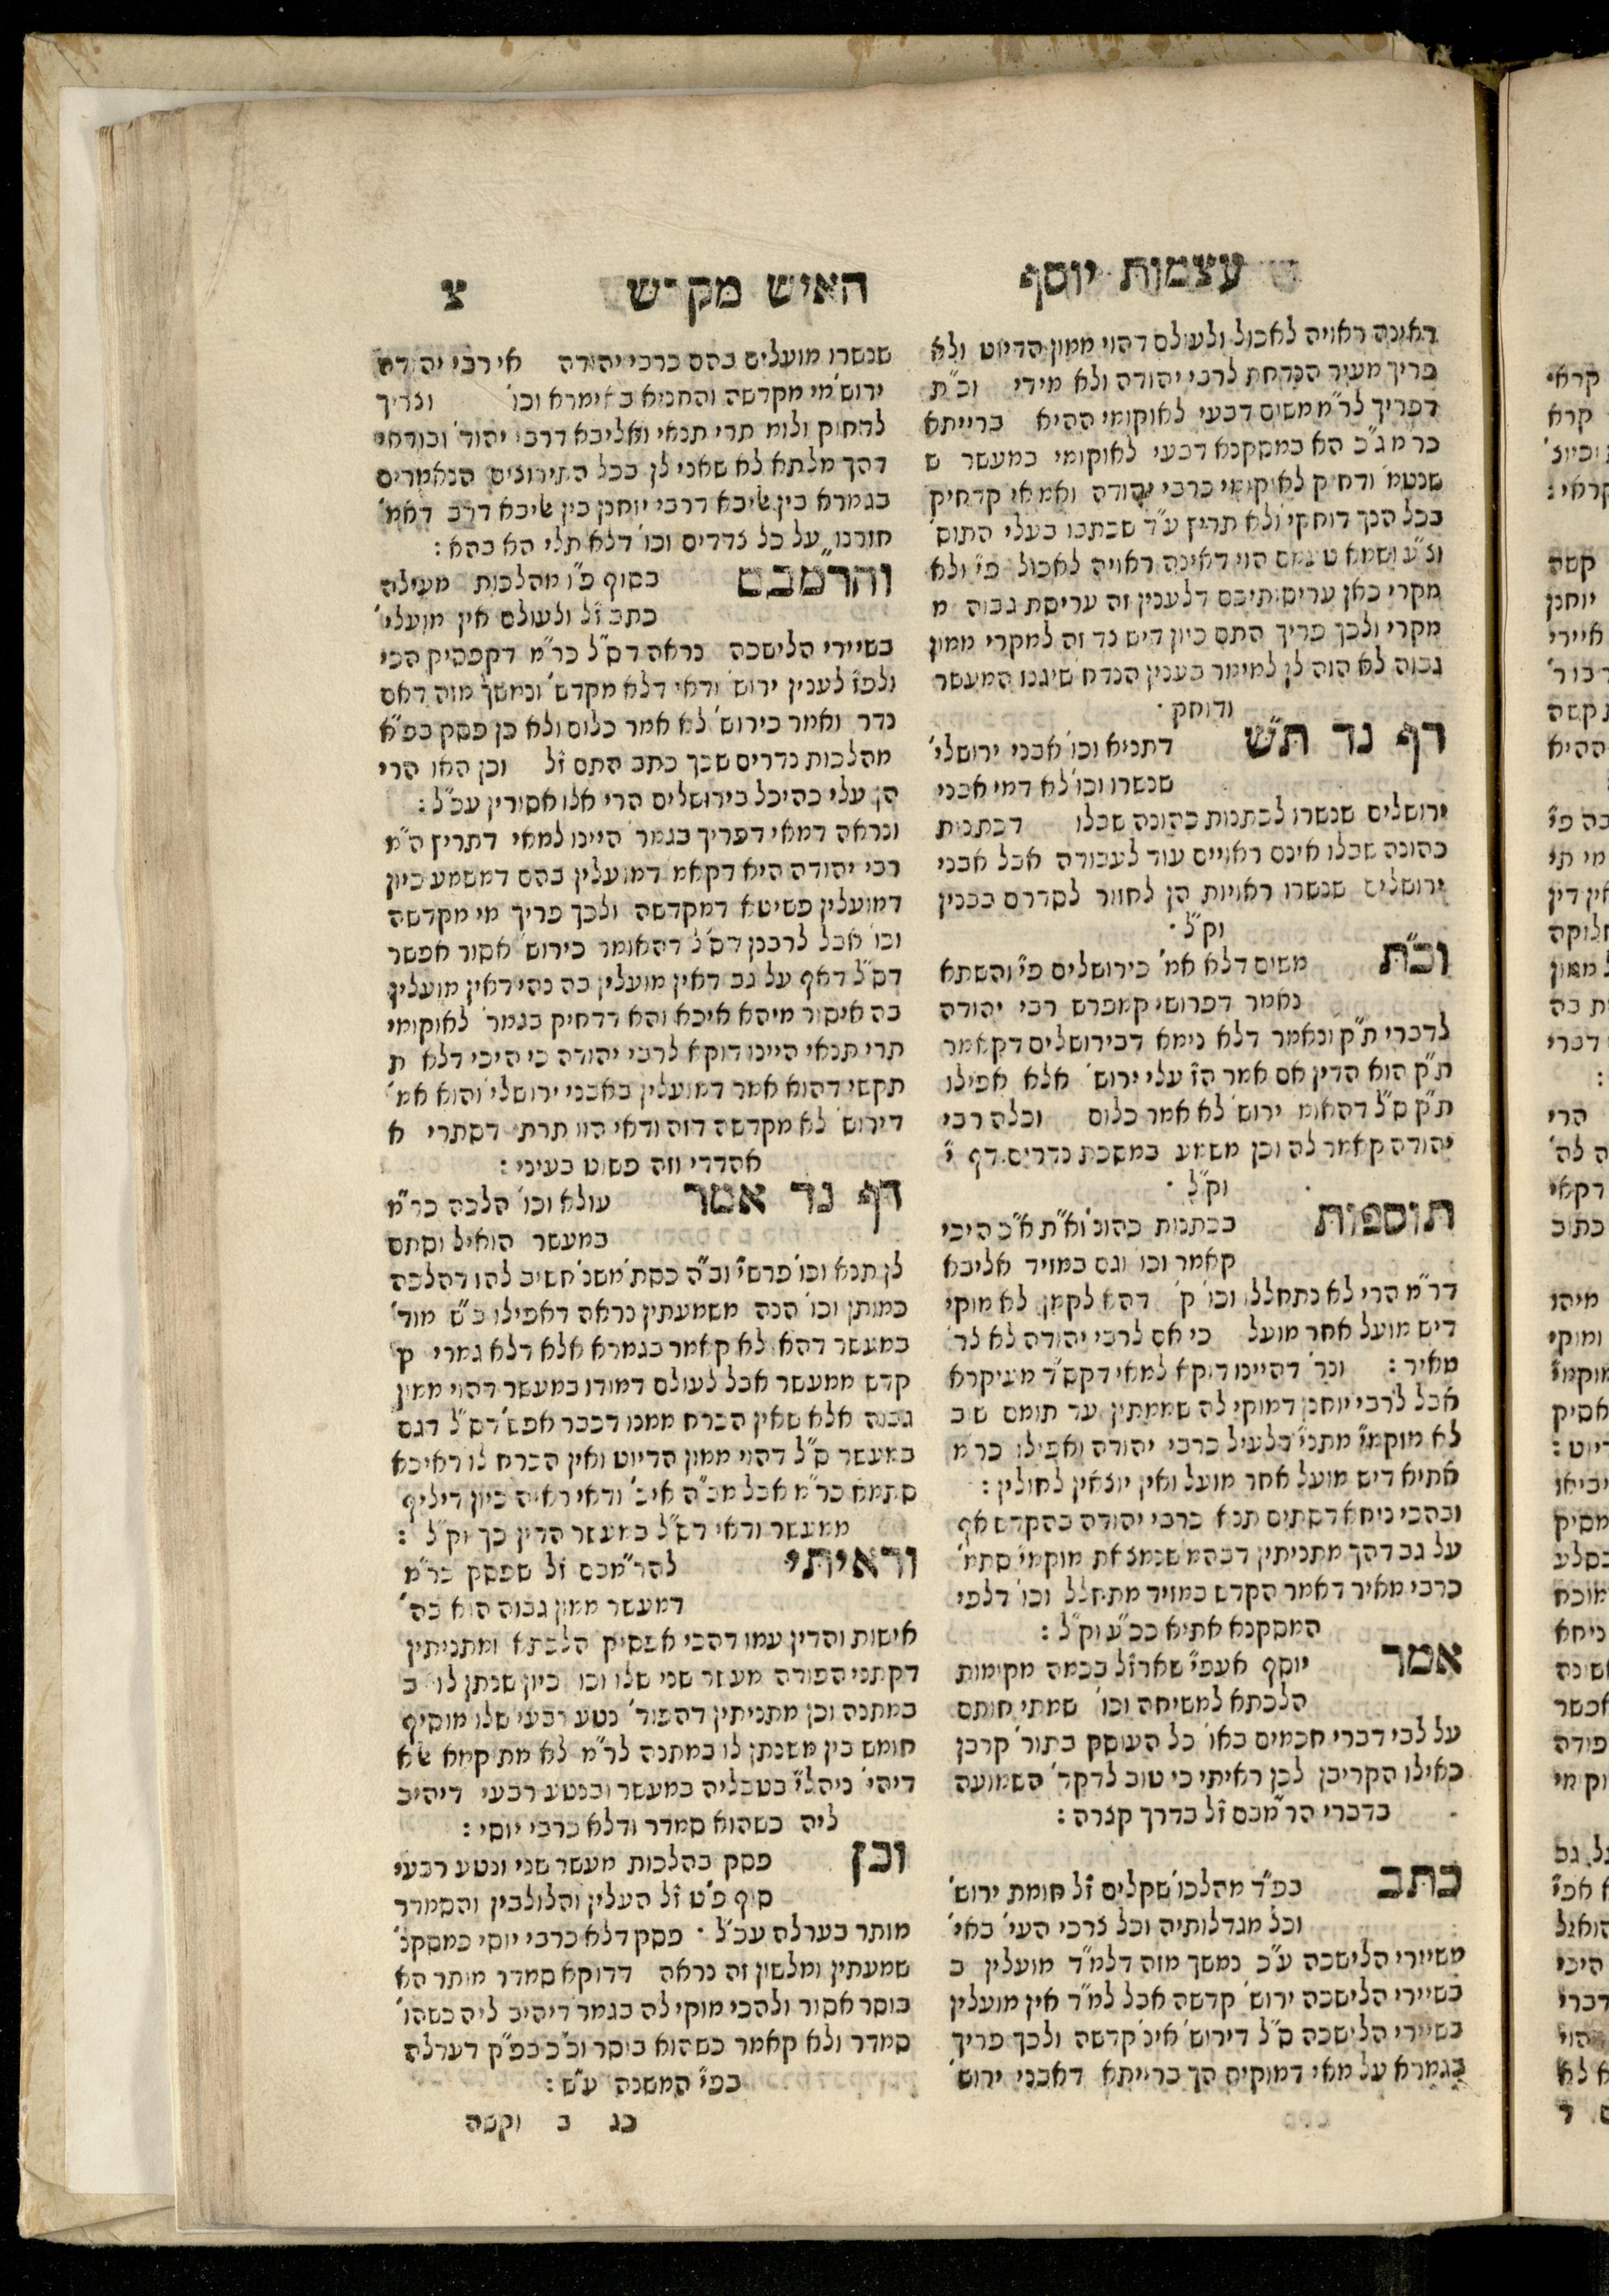 עצמות יוסף
האיש מקדש
צ
דאינה ראויה לאכול ולעולם דהוי ממון הדיוט ולא
פריך מעיר הנדחת לרבי יהודה ולא מידי וכ"ת
דפריך לר"מ משום דבעי לאוקומי ההיא ברייתא
כר מ ג"כ הא במסקנא דבעי לאוקומי במעשר ש
שנטמ' ודחיק לאוקומי כרבי יהודה ואמאי קדחיק
בכל הנך דוחקי ולא תריץ ע"ד שכתבו בעלי התוס'
וצ"ע ושמא טעם הוי דאינה ראויה לאכול פי' ולא
מקרי כאן עריסותיכם דלענין זה עריסת גבוה מ
מקרי ולכך פריך התם כיון דיש צד זה למקרי ממון
גבוה לא הוה לן למימר בענין הנדח' שיגנזו המעשר
ודוחק .
דף נד ת"ש
דתניא וכו' אבני ירושלי'
שנשרו וכו' לא דמי אבני
ירושלים שנשרו לכתנות כהונה שבלו דכתנות
כהונה שבלו אינם ראויים עוד לעבודה אבל אבני
ירושלים שנשרו ראויות הן לחזור לסדרם בבנין
וק"ל .
וכ"ת
משום דלא אמ' כירושלים פי' והשתא
נאמר דפרושי קמפרש רבי יהודה
לדברי ת"ק ונאמר דלא נימא דבירושלים דקאמר
ת"ק הוא הדין אם אמר הז' עלי ירוש' אלא אפילו
ת"ק ס"ל דהאומ' ירוש' לא אמר כלום וכלה רבי
יהודה קאמר לה וכן משמע במסכת נדרים דף י'
וק"ל .
תוספות
בכתנות כהונ' וא"ת א"כ היכי
קאמר וכו' וגם במזיד אליבא
דר"מ הרי לא נתחללו וכו' ק' דהא לקמן לא מוקי
דיש מועל אחר מועל כי אם לרבי יהודה לא לר'
מאיר : ונר' דהיינו דוקא למאי דקס"ד מעיקרא
אבל לרבי יוחנן דמוקי לה שממתין עד תומם שוב
לא מוקמי' מתני' דלעיל כרבי יהודה ואפילו כר מ
אתיא דיש מועל אחר מועל ואין יוצאין לחולין :
ובהכי ניחא דסתים תנא כרבי יהודה בהקדש אף
על גב דהך מתניתין דבהמ' שנמצאת מוקמי' סתמ'
כרבי מאיר דאמר הקדש במזיד מתחלל וכו' דלפי
המסקנא אתיא ככ"ע וק"ל :
אמר
יוסף אעפ"י שארז"ל בכמה מקומות
הלכתא למשיחה וכו' שמתי חותם
על לבי דברי חכמים באו' כל העוסק בתור' קרבן
כאילו הקריבן לכן ראיתי כי טוב לדקד' השמועה
בדברי הר"מבם ז"ל בדרך קצרה :
כתב
בפ"ד מהלכו' שקלים ז"ל חומת ירוש'
וכל מגדלותיה וכל צרכי העי' באי'
משיירי הלישכה ע"כ נמשך מזה דלמ"ד מועלין ב
בשיירי הלישכה ירוש' קדשה אבל למ"ד אין מועלין
בשיירי הלישכה ס"ל דירוש' אינ' קדשה ולכך פריך
בגמרא על מאי דמוקים הך ברייתא דאבני ירוש'
שנשרו מועלים בהם כרבי יהודה אי רבי יהודה
ירוש' מי מקדשה והתניא כאימרא וכו' וצריך
לדחוק ולומ' תרי תנאי ואליבא דרבי יהוד' ובודאי
דהך מלתא לא שאני לן בכל התירוצים הנאמרים
בגמרא בין שיבא דרבי יוחנן בין שיבא דרב דאמ'
חזרנו על כל צדדים וכו' דלא תלי הא בהא :
והרמבם
בסוף פ"ו מהלכות מעילה
כתב ז"ל ולעולם אין מועלי'
בשיירי הלישכה נראה דס"ל כר"מ דקפסיק הכי
ולפ"ז לענין ירוש' ודאי דלא מקדש' ונמשך מזה דאם
נדר ואמר כירוש' לא אמר כלום ולא כן פסק בפ"א
מהלכות נדרים שכך כתב התם ז"ל וכן האו' הרי
הן עלי כהיכל כירושלים הרי אלו אסורין עכ"ל :
ונראה דמאי דפריך בגמר' היינו למאי דתריץ ה"מ
רבי יהודה היא דקאמ' דמועלין בהם דמשמע כיון
דמועלין פשיטא דמקדשה ולכך פריך מי מקדשה
וכו' אבל לרבנן דס"ל דהאומר כירוש' אסור אפשר
דס"ל דאף על גב דאין מועלין בה נהי דאין מועלין
בה איסור מיהא איכא והא דדחיק בגמר' לאוקומי
תרי תנאי היינו דוקא לרבי יהודה כי היכי דלא ת
תקשי דהוא אמר דמועלין באבני ירושלי' והוא אמ'
דירוש' לא מקדשה דזה ודאי הוו תרתי דסתרי א
אהדדי וזה פשוט בעיני :
דף נד אמר
עולא וכו' הלכה כר"מ
במעשר הואיל וסתם
לן תנא וכו' פרש"י וב"ה כסת' משנ' חשיב להו דהלכה
כמותן וכו' הנה משמעתין נראה דאפילו ב"ש מוד'
במעשר דהא לא קאמר בגמרא אלא דלא גמרי ק
קדש ממעשר אבל לעולם דמודו במעשר דהוי ממון
גבוה אלא שאין הכרח ממנו דכבר אפש' דס"ל דגם
במעשר ס"ל דהוי ממון הדיוט ואין הכרח לו דאיכא
סתמא כר"מ אבל מב"ה איכ' ודאי ראיה כיון דיליף
ממעשר ודאי דס"ל במעשר הדין כך וק"ל :
וראיתי
להר"מבם ז"ל שפסק כר"מ
דמעשר ממון גבוה הוא בה'
אישות והדין עמו דהכי אפסיק הלכתא ומתניתין
דקתני הפודה מעשר שני שלו וכו' כיון שנתן לו ב
במתנה וכן מתניתין דהפוד' נטע רבעי שלו מוסיף
חומש בין משנתן לו במתנה לר"מ לא מת קמא שא
דיהי' ניהלי' בטבליה במעשר ובנטע רבעי דיהיב
ליה כשהוא סמדר ודלא כרבי יוסי :
וכן
פסק בהלכות מעשר שני ונטע רבעי
סוף פ"ט ז"ל העלין והלולבין והסמדר
מותר בערלה עכ"ל . פסק דלא כרבי יוסי כמסקנ'
שמעתין ומלשון זה נראה דדוקא סמדר מותר הא
בוסר אסור ולהכי מוקי לה בגמר' דיהיב ליה כשהו'
סמדר ולא קאמר כשהוא בוסר וכ"כ בפ"ק דערלה
בפי' המשנה ע"ש :
כג ב וקשה